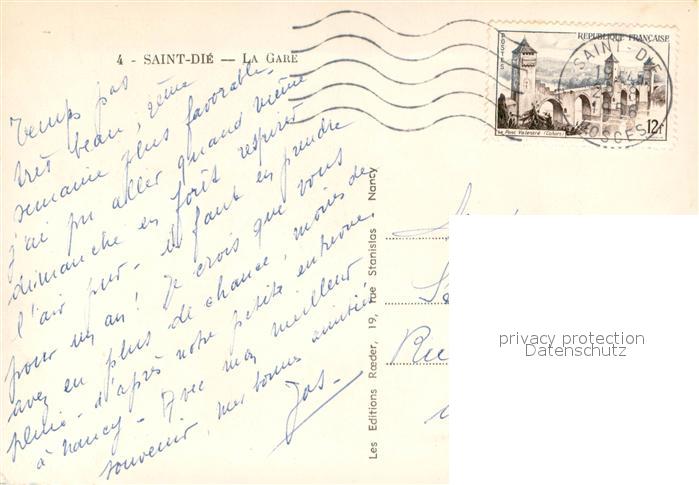 4 - SAINT-DIÉ — LA GARE
Temps pas
très beau, 2ème
semaine plus favorable
j'ai pu aller quand même
dimanche en forêt respirer
l'air pur - il faut en prendre
pour un an ! Je crois que vous
avez eu plus de chance, moins de
pluie - d'après notre petite entrevue
à Nancy - Avec mon meilleur
souvenir, mes bonnes amitiés
Jas -
Les Editions Rœder, 19, rue Stanislas Nancy
POSTES
REPUBLIQUE FRANÇAISE
Le Pont Valentré (Cahors)
12F
SAINT-DIÉ
VOSGES
Ru
privacy protection
Datenschutz